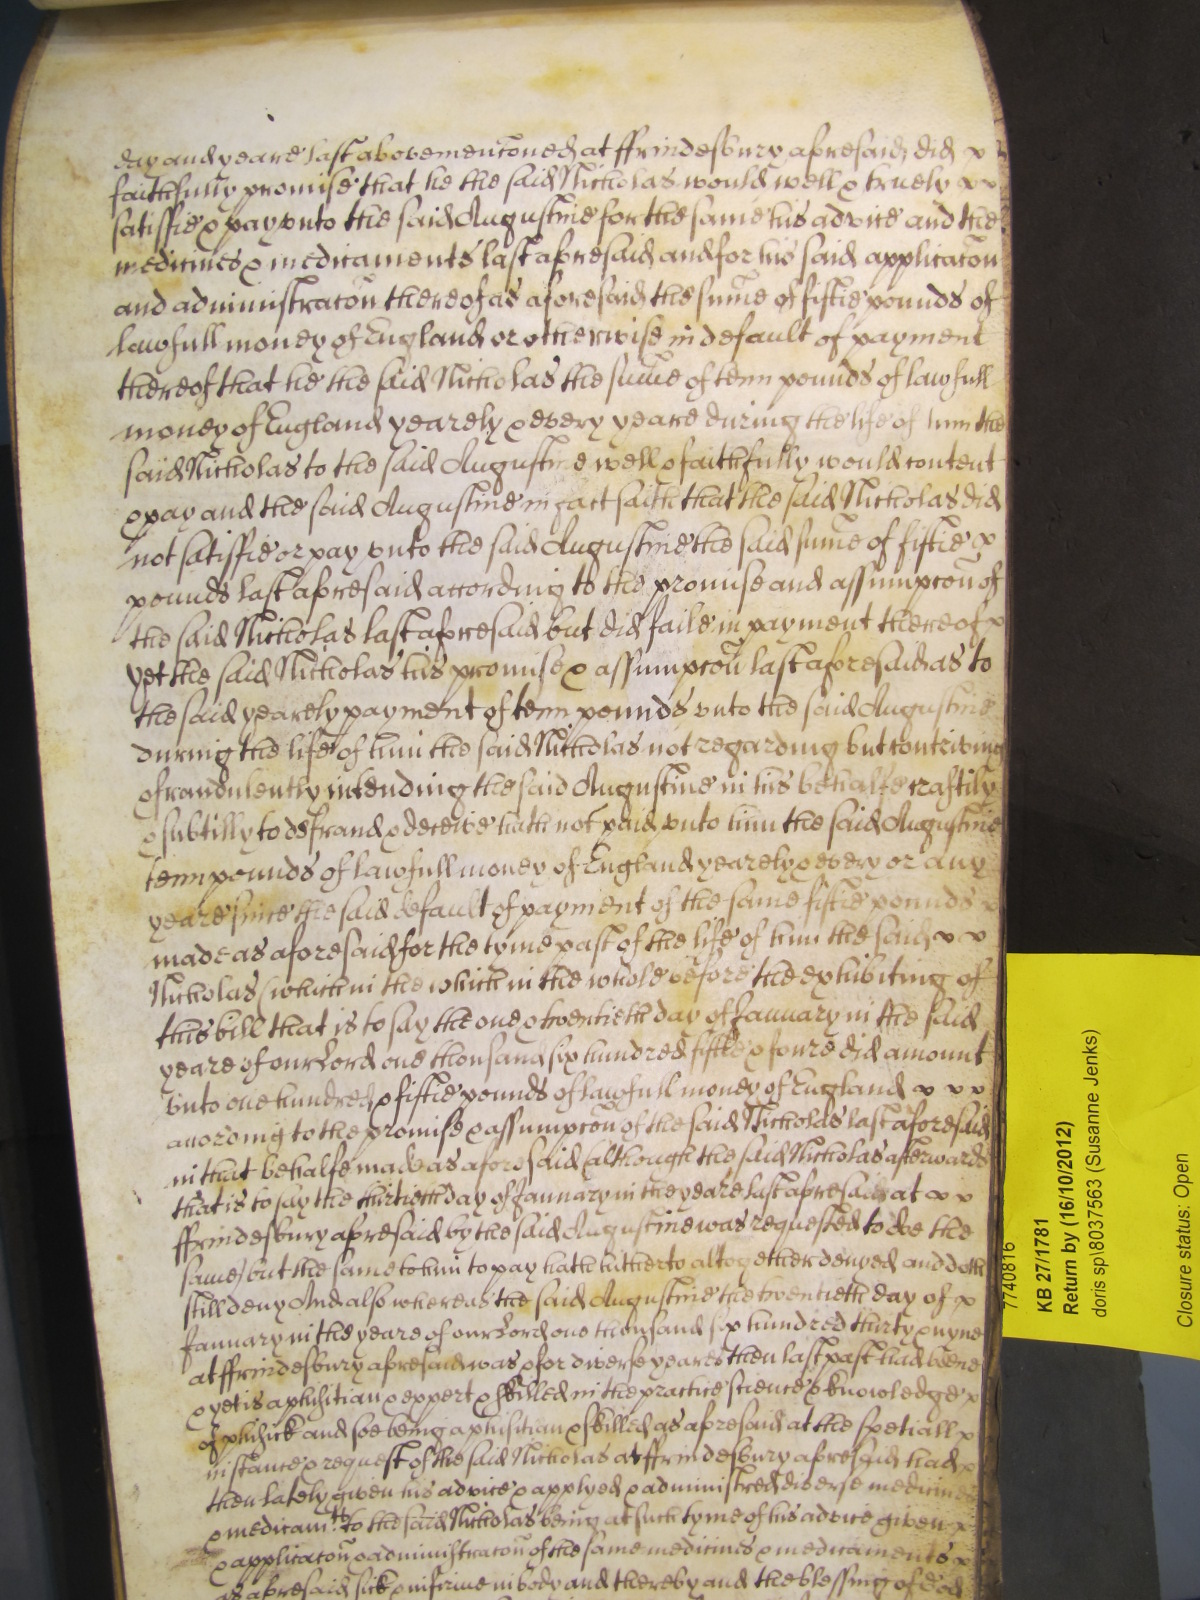 day and yeare last abovementioned at ffrindesbury aforesaid did x
faithfully promise that he the said Nicholas would well & truely x x
satisfie & pay unto the said Augustine for the same his advice and the
medicines & medicaments last aforesaid and for his said applicacon
and administracon thereof as aforesaid the sume of fiftie pounds of
lawfull money of England or otherwise in default of payment
thereof that he the said Nicholas the sume of tenn pounds of lawfull
money of England yearely & every yeare during the life of him the
said Nicholas to the said Augustine well & faithfully would content
& pay and the said Augustine in fact saith that the said Nicholas did
not satisfie or pay unto the said Augustine the said sume of fiftie x
pounds last aforesaid according to the promise and assumpcon of
the said Nicholas last aforesaid but did faile in payment thereof x
yet the said Nicholas his promise & assumpcon last aforesaid as to
the said yearely payment of tenn pounds unto the said Augustine
during the life of him the said Nicholas not regarding but contriving
& fraudulently intending the said Augustine in his behalfe craftily
& subtilly to defraud & deceive hath not paid unto him the said Augustine
tenn pounds of lawfull money of England yearely & every or any
yeare since the said default of payment of the same fiftie pounds x
made as aforesaid for the tyme past of the life of him the said x x
Nicholas (which in the which in the whole before the exhibiting of
this bill that is to say the one & twentieth day of January in the said
yeare of our Lord one thousand six hundred fiftie & foure did amount
unto one hundred & fiftie pounds of lawfull money of England x x x
according to the promise & assumpcon of the said Nicholas last aforesaid
in that behalfe made as aforesaid (although the said Nicholas afterwards
that is to say the thirtieth day of January in the yeare last aforesaid at x x
ffrindesbury aforesaid by the said Augustine was requested to doe the
same) but the same to him to pay hath hitherto altogether denyed and doth
still deny And also whereas the said Augustine the twentieth day of x
January in the yeare of our Lord one thousand six hundred thirty & nyne
at ffrindesbury aforesaid was & for diverse yeares then last past had beene
& yet is a phisitian & expert & skilled in the practice science & knowledge x
of phisick and soe being a phisitian & skilled as aforesaid at the spetiall x
instance & request of the said Nicholas at ffrindesbury aforesaid had x
then lately given his advice & applyed & administred diverse medicines
& medicamts to the said Nicholas being at such tyme of his advice given x
& applicacon & administracon of the same medicines & medicaments x
as aforesaid sick & infirme in body and thereby and the blessing of God
7740816
KB 27/1781
Return by (16/10/2012)
doris sp\8037563 (Susanne Jenks)
Closure status: Open